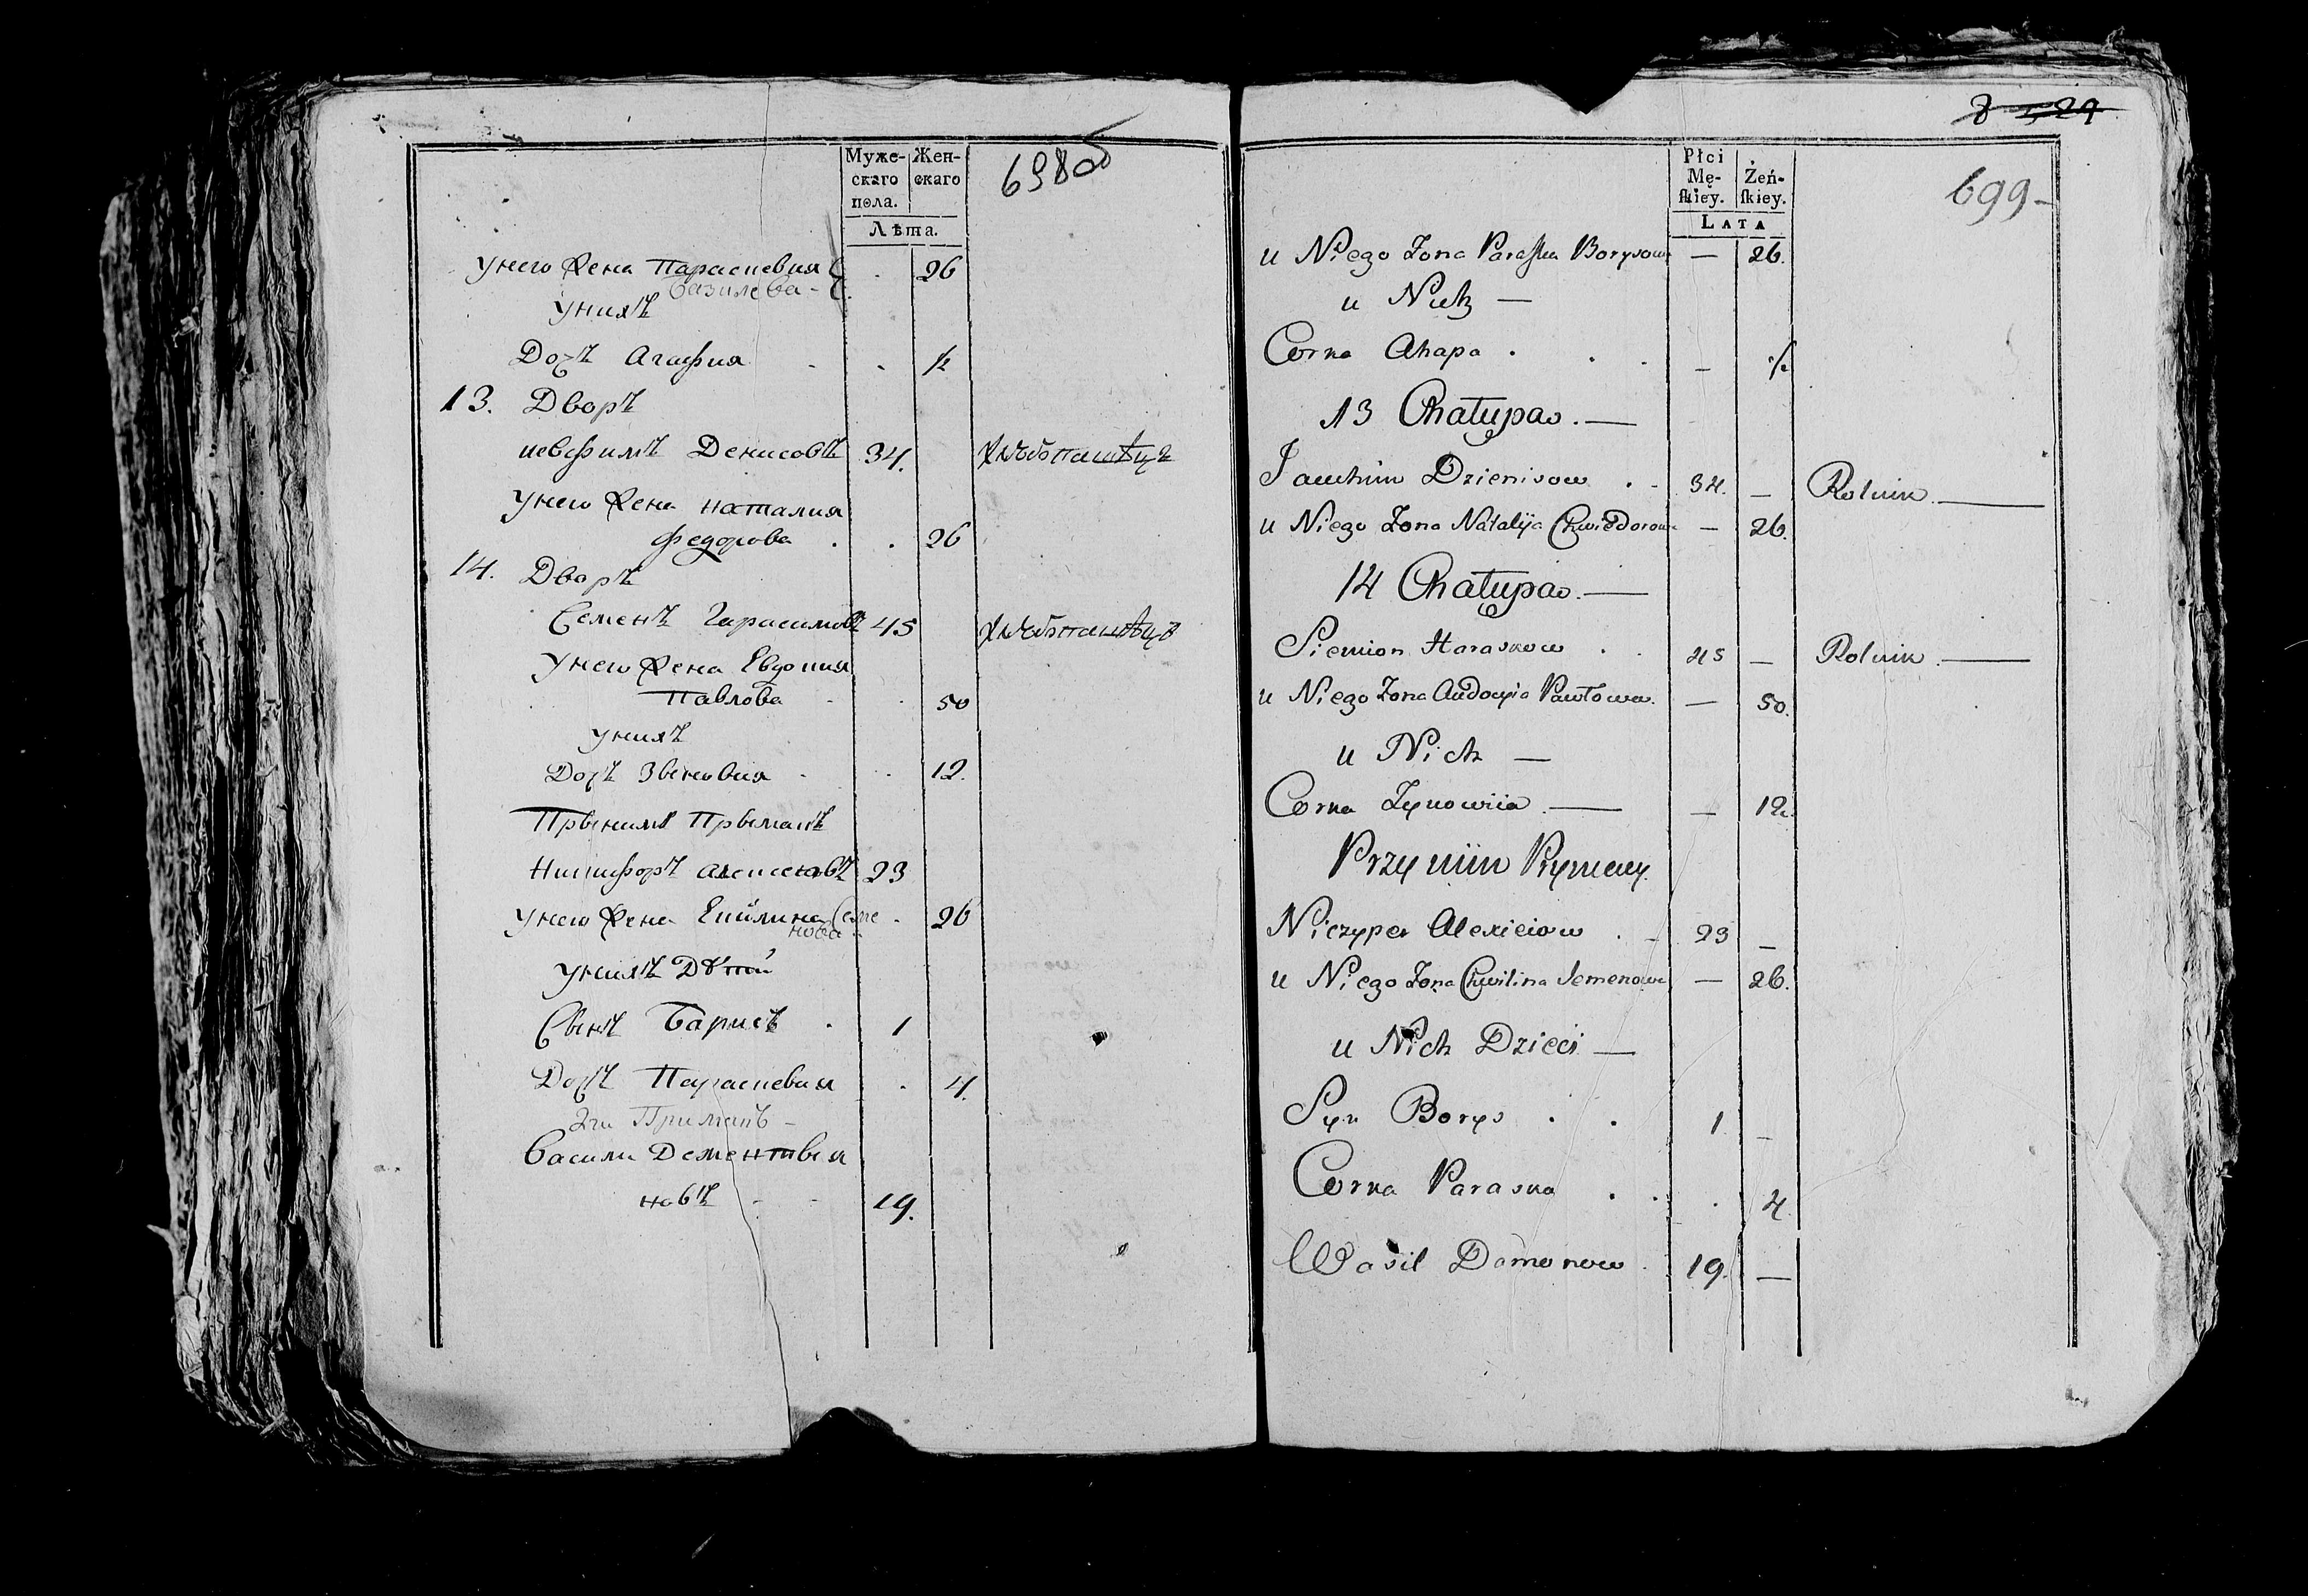 Муже-
скаго
пола.
Жен-
скаго
Лѣта.
698об
Унего Жена Параскевия 26
Базилева
Унихъ
Дочъ Агафия ½
13. Дворъ
иевфимъ Денисовъ 34. Хлебопашецъ
Унего Жена наталия
Федорова 26
14. Дворъ
Семенъ Гарасимовъ 45 Хлебопашецъ
Унего Жена Евдокия
Павлова 50
Унихъ
Дочъ Зеновия 12.
При нимъ
Никифоръ алексеевъ 23
Унего Жена Семе
нова 26
Унихъ Дѣти
Сынъ Барисъ 1
Дочъ Параскевия 4.
2й Примакъ
Васили
новъ 19.
8
699
Płci
Mę-
ſkiey.
Żeń-
ſkiey.
LATA
u Niego Żona Paraſka Borysowa — 26.
u Nich —
Corka Ahapa — ½
13 Chałupa. —
Jauchim Dzienisow 34. — Rolnik —
u Niego Żona Natalija Chwiedorowa — 26.
14 Chałupa. —
Siemion Haraskow 45 — Rolnik. —
u Niego Żona Audocyia Pawłowa. — 50.
u Nich —
Corka Zynowiia — — 12.
Przy niin Prymaky
Niczyper Alexieiow 23 —
u Niego Żona Chwilina Semenowa — 26.
u Nich Dzieci —
Syn Borys 1 —
Corka Paraska 4.
Wasil Damonow 19. —